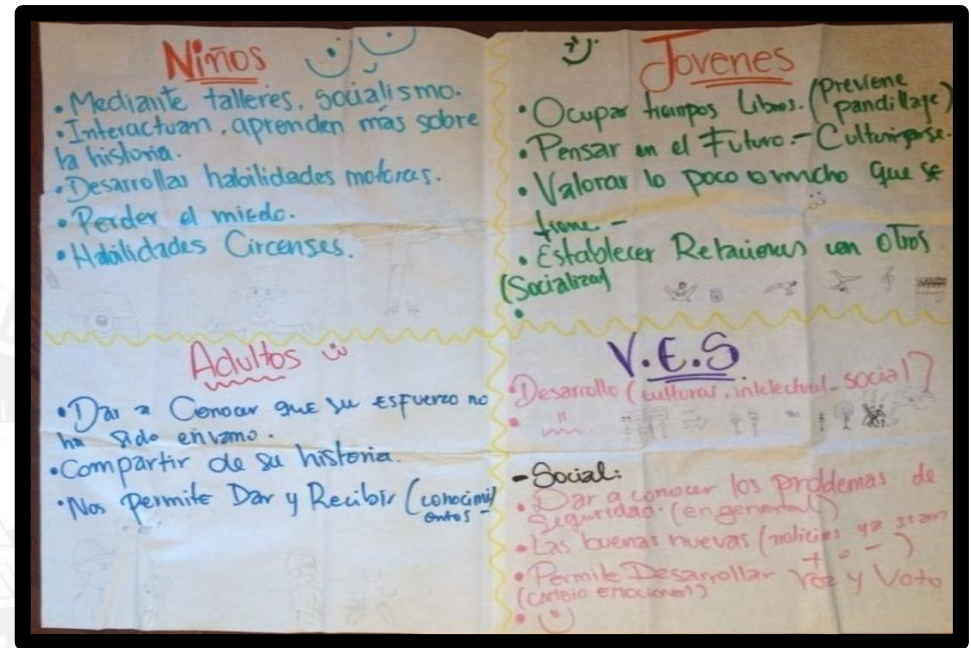 Niños
• Mediante talleres, socialismo.
• Interactuan, aprenden mas sobre
la historia.
• Desarrollar habilidades motoras.
• Perder el miedo.
• Habilidades Circenses.
Jovenes
• Ocupar tiempos Libres. (Previene
pandillaje)
• Pensar en el Futuro.- Culturizarse.
• Valorar lo poco o mucho que se
tiene. -
• Establecer Relaciones con otros
(Socializar)
•
Adultos
• Dar a Conocer que su esfuerzo no
ha sido envano.
• Compartir de su historia.
• Nos Permite Dar y Recibir (conocimi
entos -
V.E.S
• Desarrollo (cultural, intelectual - social)
• "
- Social:
• Dar a conocer los problemas de
Seguridad. (en general)
• Las buenas nuevas (noticias ya sean
+ o -)
• Permite Desarrollar Voz y Voto
(cambio emocional)
•